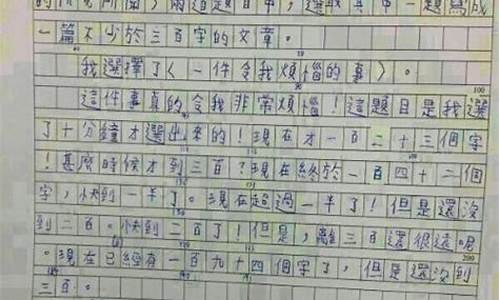 的所見所聞,兩道題目中,選取其中一題寫成
一篇不少於三百字的文章。
我選擇了〈一件令我煩惱的事〉。
100
這件事真的令我非常煩惱!這題目是我選
了十分鐘才選出來的!現在才一百二十三個字
!甚麼時候才到三百?現在終於一百四十二個
字,快到一半了。現在超過一半了!但是還沒
到二百。快到二百了!但是,離三百還很遠呢
200
。現在已經有一百九十四個字了,但是還沒到
三百。